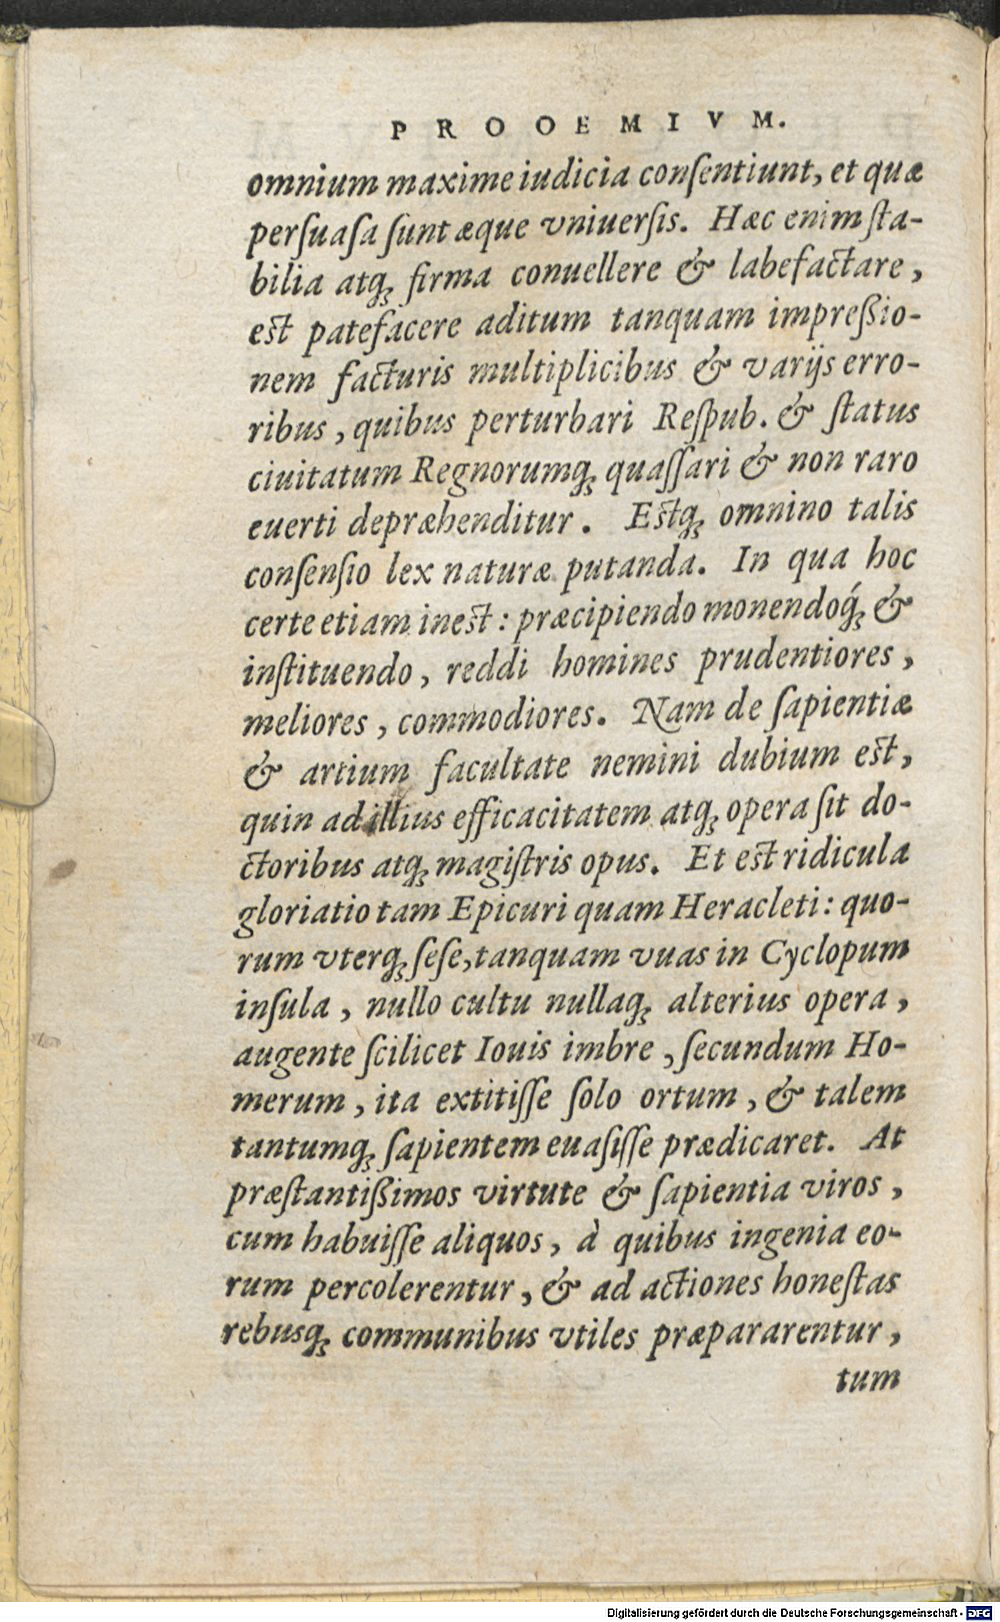 PROOEMIVM.
omnium maxime iudicia conſentiunt, et quæ
perſuaſa ſunt æque vniuerſis. Hæc enim ſta-
bilia atq́; firma conuellere & labefactare,
est patefacere aditum tanquam impreßio-
nem facturis multiplicibus & varijs erro-
ribus, quibus perturbari Reſpub. & ſtatus
ciuitatum Regnorumq; quaſſari & non raro
euerti depræhenditur. Estq; omnino talis
conſenſio lex naturæ putanda. In qua hoc
certe etiam inest: præcipiendo monendoq́; &
inſtituendo, reddi homines prudentiores,
meliores, commodiores. Nam de ſapientiæ
& artium facultate nemini dubium est,
quin ad illius efficacitatem atq; opera ſit do-
ctoribus atq; magiſtris opus. Et est ridicula
gloriatio tam Epicuri quam Heracleti: quo-
rum vterq; ſeſe, tanquam vuas in Cyclopum
inſula, nullo cultu nullaq; alterius opera,
augente ſcilicet Iouis imbre, ſecundum Ho-
merum, ita extitiſſe ſolo ortum, & talem
tantumq; ſapientem euaſiſſe prædicaret. At
præſtantißimos virtute & ſapientia viros,
cum habuiſſe aliquos, à quibus ingenia eo-
rum percolerentur, & ad actiones honeſtas
rebusq; communibus vtiles præpararentur,
tum
Digitalisierung gefördert durch die Deutsche Forschungsgemeinschaft - DFG